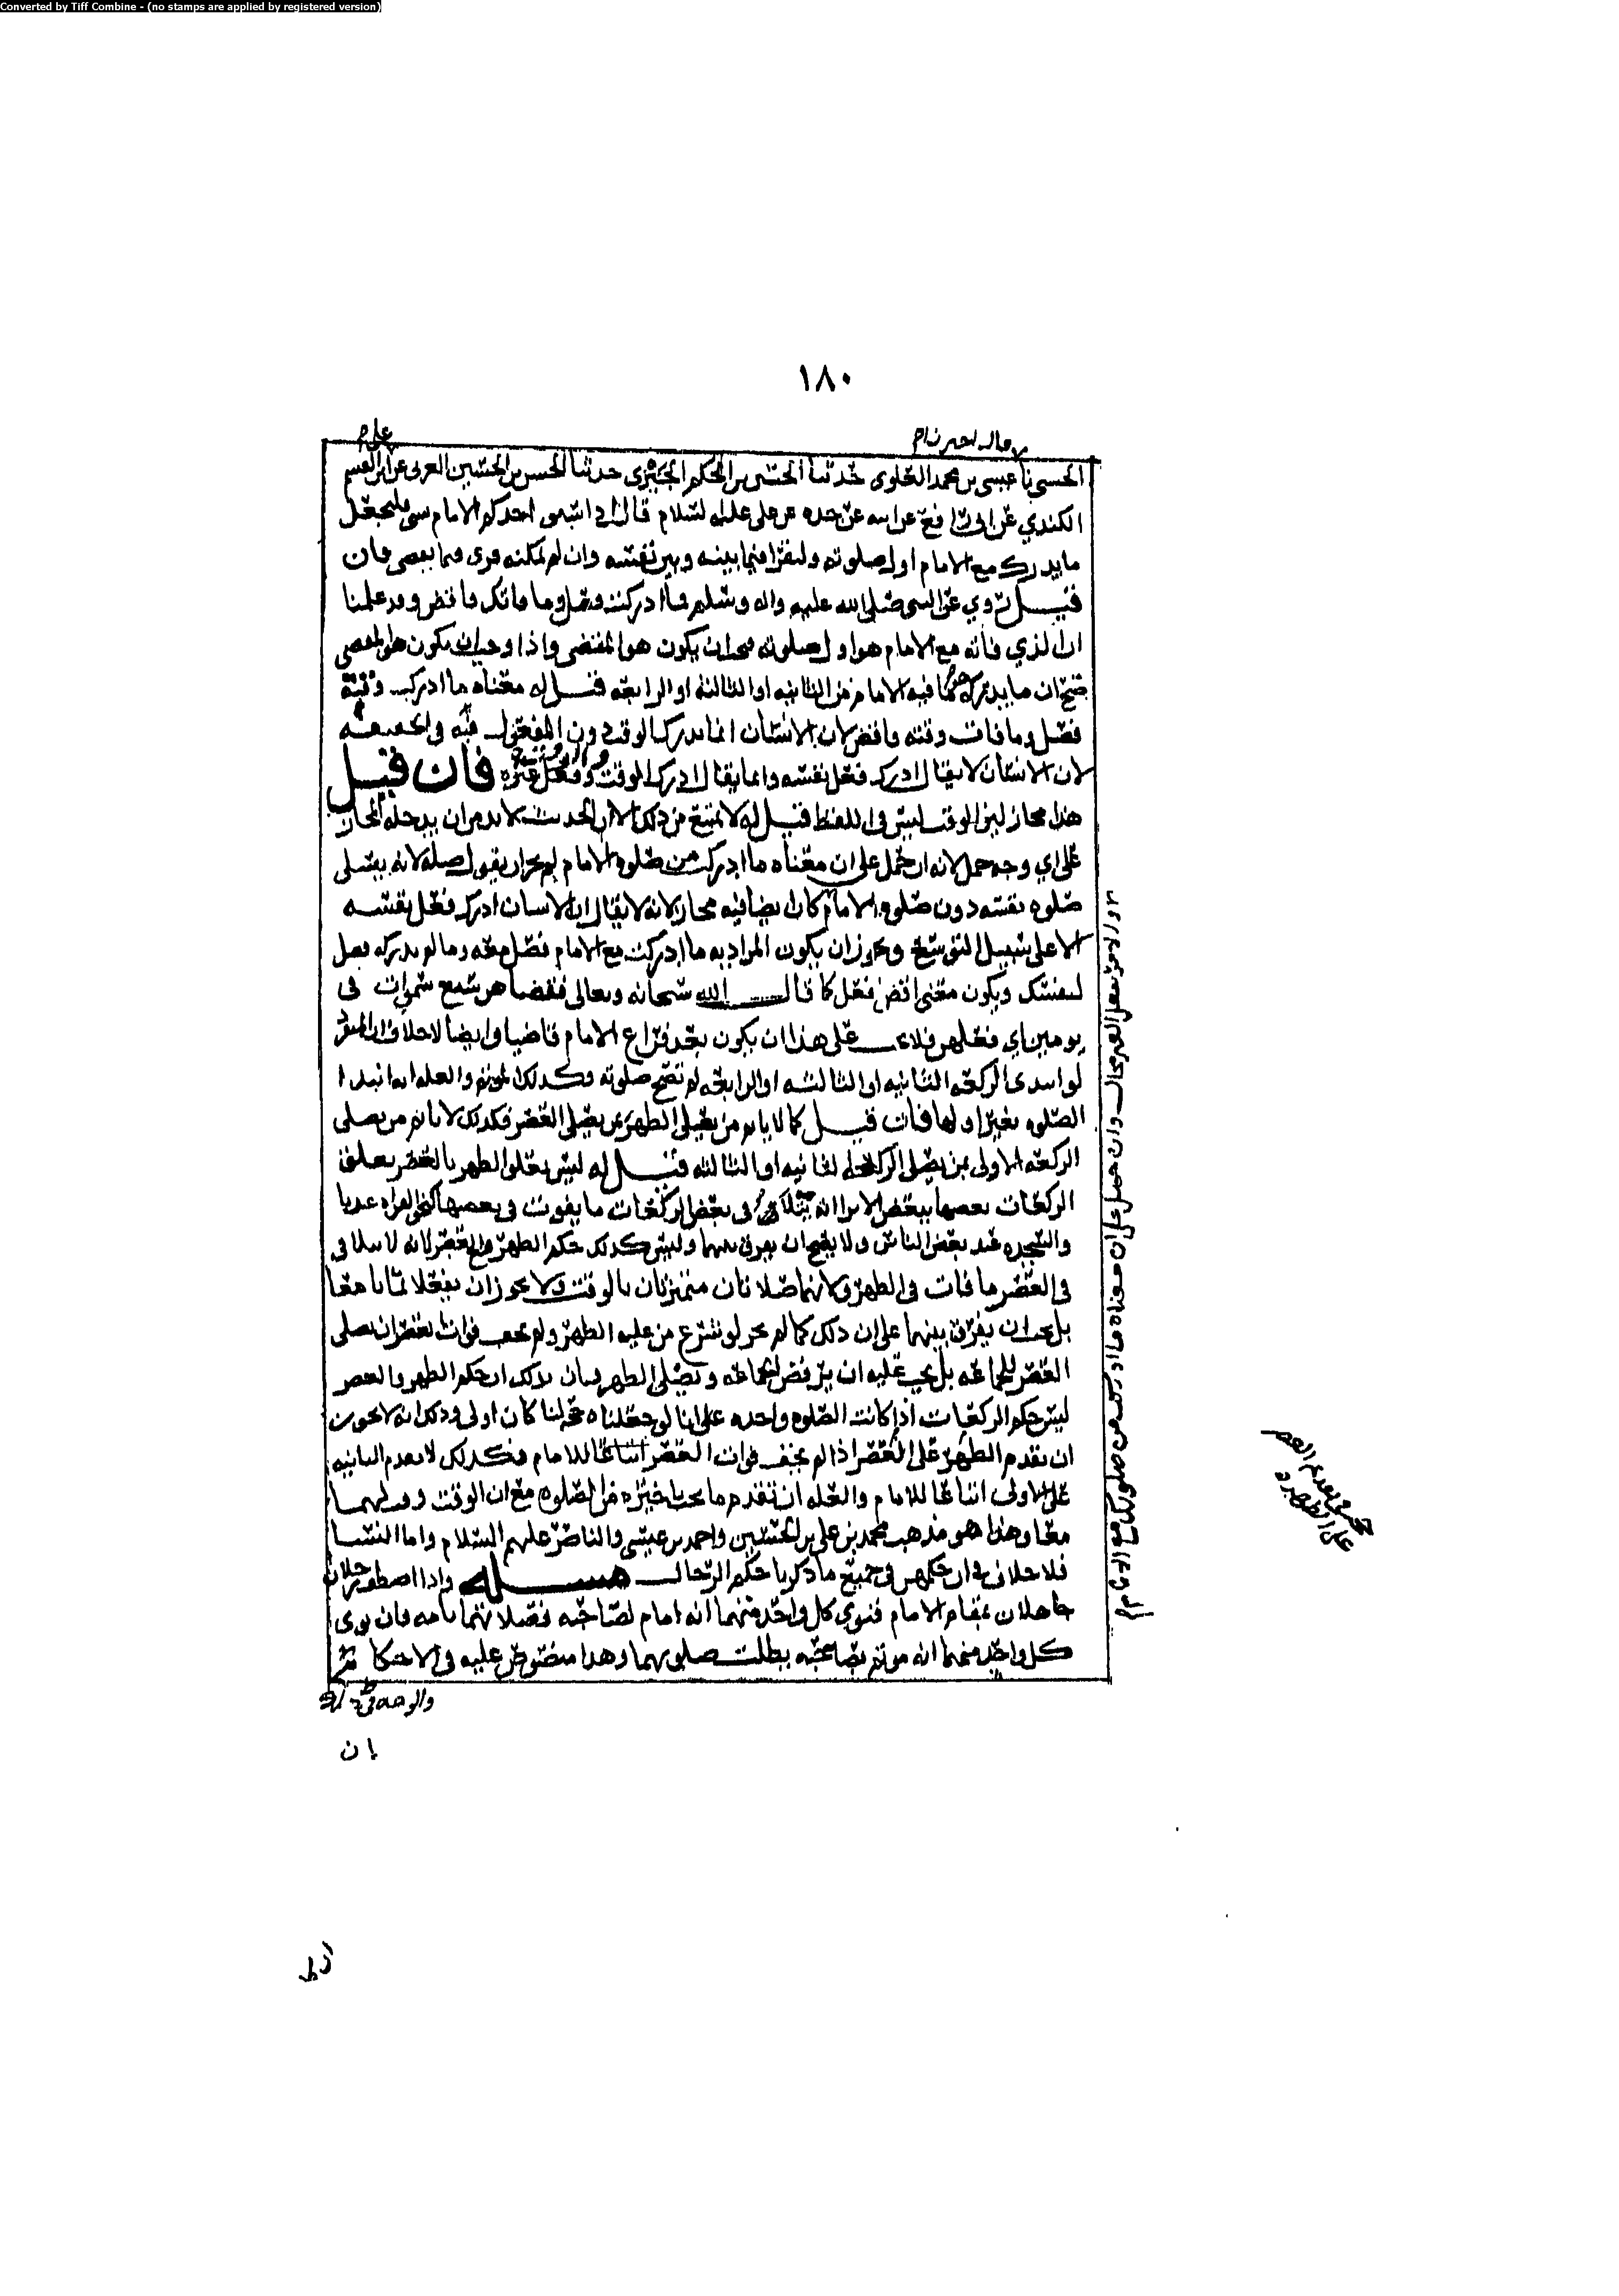 Converted by Tiff Combine - (no stamps are applied by registered version)
١٨٠
الحسنى نا عيسى بن محمد العلوى حدثنا الحسين بن الحكم الحبرى حدثنا الحسن بن الحسين العرنى عن ابى القسم
الكندي عن ابن ابى رافع عن ابيه عن جده عن علي عليه السلام قال اذا سبق احدكم الامام بشي فليجعل
ما يدرك مع الامام اول صلوته وليقرا فيما بينه وبين نفسه وان لم يمكنه قرى فيما يقضي فان
قيل روي عن النبي صلى الله عليه واله وسلم ما ادركت فصل وما فاتك فاقض وقد علمنا
ان الذي فاته مع الامام هو اول صلوته فيجب ان يكون هو المقضي واذا وجب ان يكون هو المقضي
صح ان ما يدركه فيه الامام من الثانيه او الثالثه او الرابعه قيل له معناه ما ادركت وقته
فصل وما فات وقته فاقض لان الانسان انما يدرك الوقت دون المفعول فيه في الحقيقه
لان الانسان لا يقال ادرك فعل نفسه وانما يقال ادرك الوقت وفعل غيره فان قيل
هذا مجاز ليس الوقت ليس في اللفظ قيل له لا يمتنع من ذلك لان الحديث لا بد من ان يدخله المجاز
على اي وجه حمل لانه ان حمل على ان معناه ما ادركت من صلوة الامام لم يجز ان يقول صله لانه يصلي
صلوه نفسه دون صلوه الامام كان ايضا فيه مجاز لانه لا يقال ان الانسان ادرك فعل نفسه
الا على سبيل التوسع ويجوز ان يكون المراد به ما ادركت مع الامام فصل معه وما لم تدركه فصل
لنفسك ويكون معنى اقض افعل كما قال الله سبحانه وتعالى فقضاهن سبع سموات في
يومين اي فعلهن فلا على هذا ان يكون بعد فراغ الامام قاضيا وايضا لا خلاف ان المنفرد
لو ابتدى الركعه الثانيه او الثالثه او الرابعه لم تصح صلوته وكذلك المؤتم والعله انه ابتدا
الصلوه بغير اولها فان قيل كما لا ياتم من يصلي الظهر بمن يصلي العصر فكذلك لا ياتم من يصلي
الركعه الاولى بمن يصلي الركعه الثانيه او الثالثه قيل له ليس تعلق الظهر بالعصر تعلق
الركعات بعضها ببعض الا ترا انه يتلافى في بعض الركعات ما يفوت في بعضها كنحو القراه عندنا
والسجده عند بعض الناس ولا يصح ان يفرق بينهما وليس كذلك حكم الظهر والعصر لانه لا يتلافى
في العصر ما فات في الظهر ولانهما صلاتان متميزتان بالوقت ولا يجوز ان يفعلا ثمانيا معا
بل يجب ان يفرق بينهما على ان ذلك كما لم يجز لو شرع من عليه الظهر ولم يخف فوات العصر ان يصلي
العصر للجماعه بل يجب عليه ان يرفض الجماعه ويصلي الظهر فبان بذلك ان حكم الظهر والعصر
ليس حكم الركعات اذا كانت الصلوه واحده على انا لو جعلناه عله لنا كان اولى وذلك انه لا يجوز
ان يقدم الظهر على العصر اذا لم يخف فوات العصر اتباعا للامام وكذلك لا يقدم الثانيه
على الاولى اتباعا للامام والعله ان تقدم ما يجب تاخيره من الصلوه مع ان الوقت وقت لهما
معا وهذا هو مذهب محمد بن علي بن الحسين واحمد بن عيسى والناصر عليهم السلام واما النسا
فلا خلاف في ان حكمهن في جميع ما ذكرنا حكم الرجال مسئله واذا اصطف رجلان
جاهلان بمقام الامام فنوى كل واحد منهما انه امام لصاحبه فصلاتهما تامه فان نوى
كل واحد منهما انه مؤتم بصاحبه بطلت صلوتهما وهذا منصوص عليه في الاحكام